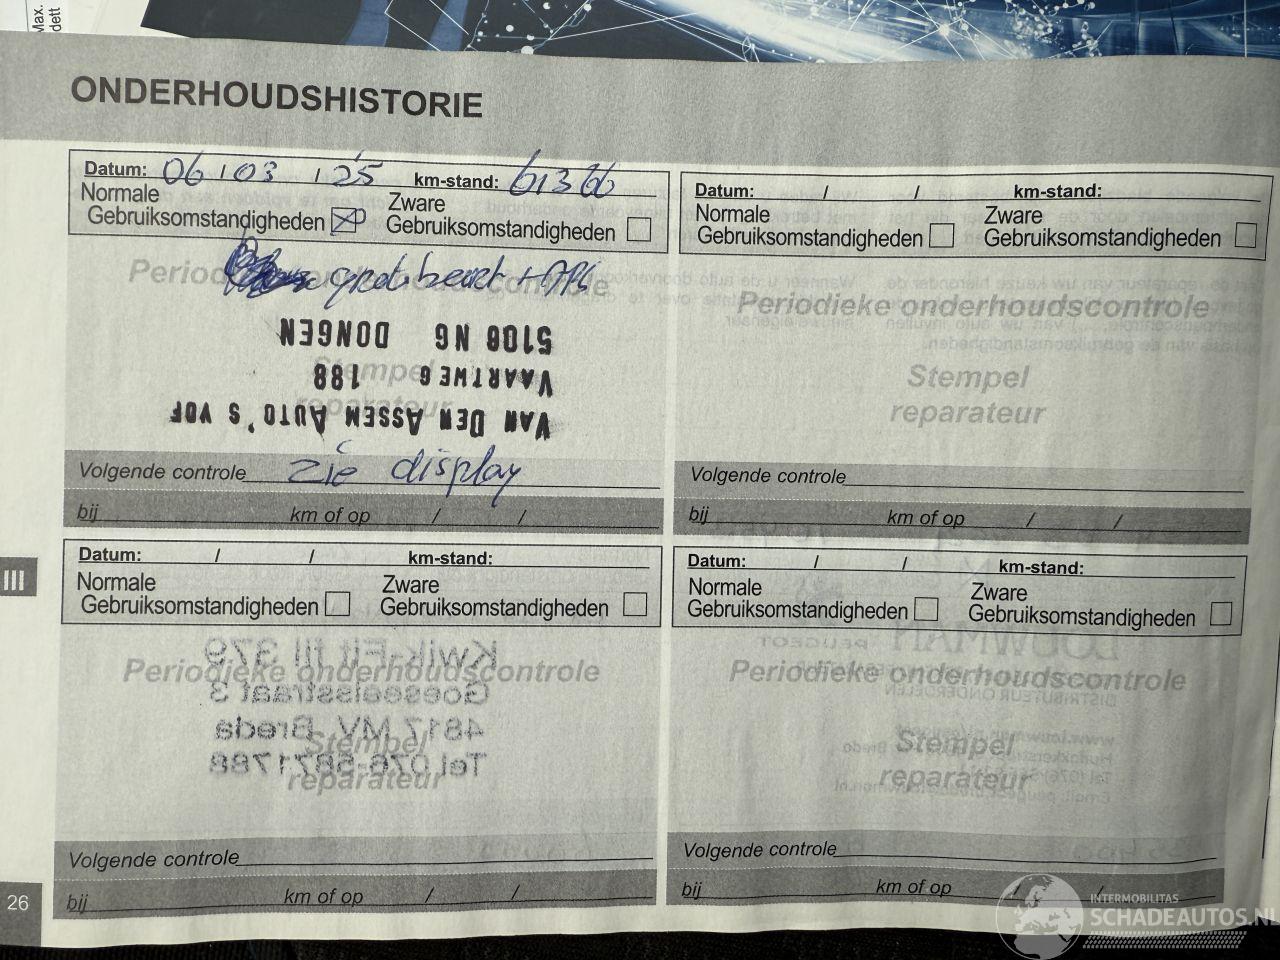 Max.
dett
ONDERHOUDSHISTORIE
Datum: 06 / 03 / 25 km-stand: 61366
Normale Gebruiksomstandigheden Zware Gebruiksomstandigheden
Periodieke onderhoudscontrole
grote beurt + APK
5106 NG DONGEN
VAARTWEG 188
VAN DEN ASSEM AUTO'S VOF
Stempel
reparateur
Volgende controle zie display
bij km of op / /
Datum: / / km-stand:
Normale Gebruiksomstandigheden Zware Gebruiksomstandigheden
Periodieke onderhoudscontrole
Stempel
reparateur
Volgende controle
bij km of op / /
III
Datum: / / km-stand:
Normale Gebruiksomstandigheden Zware Gebruiksomstandigheden
Kwik-Fit fil 379
Periodieke onderhoudscontrole
Goeseelsstraat 3
4817 MV Breda
Stempel
Tel.076-5871788
reparateur
Volgende controle
bij km of op / /
Datum: / / km-stand:
Normale Gebruiksomstandigheden Zware Gebruiksomstandigheden
LOUWMAN
PEUGEOT
Periodieke onderhoudscontrole
DISTRIBUTEUR ONDERDELEN
Stempel
reparateur
Volgende controle
bij km of op / /
26
INTERMOBILITAS
SCHADEAUTOS.NL